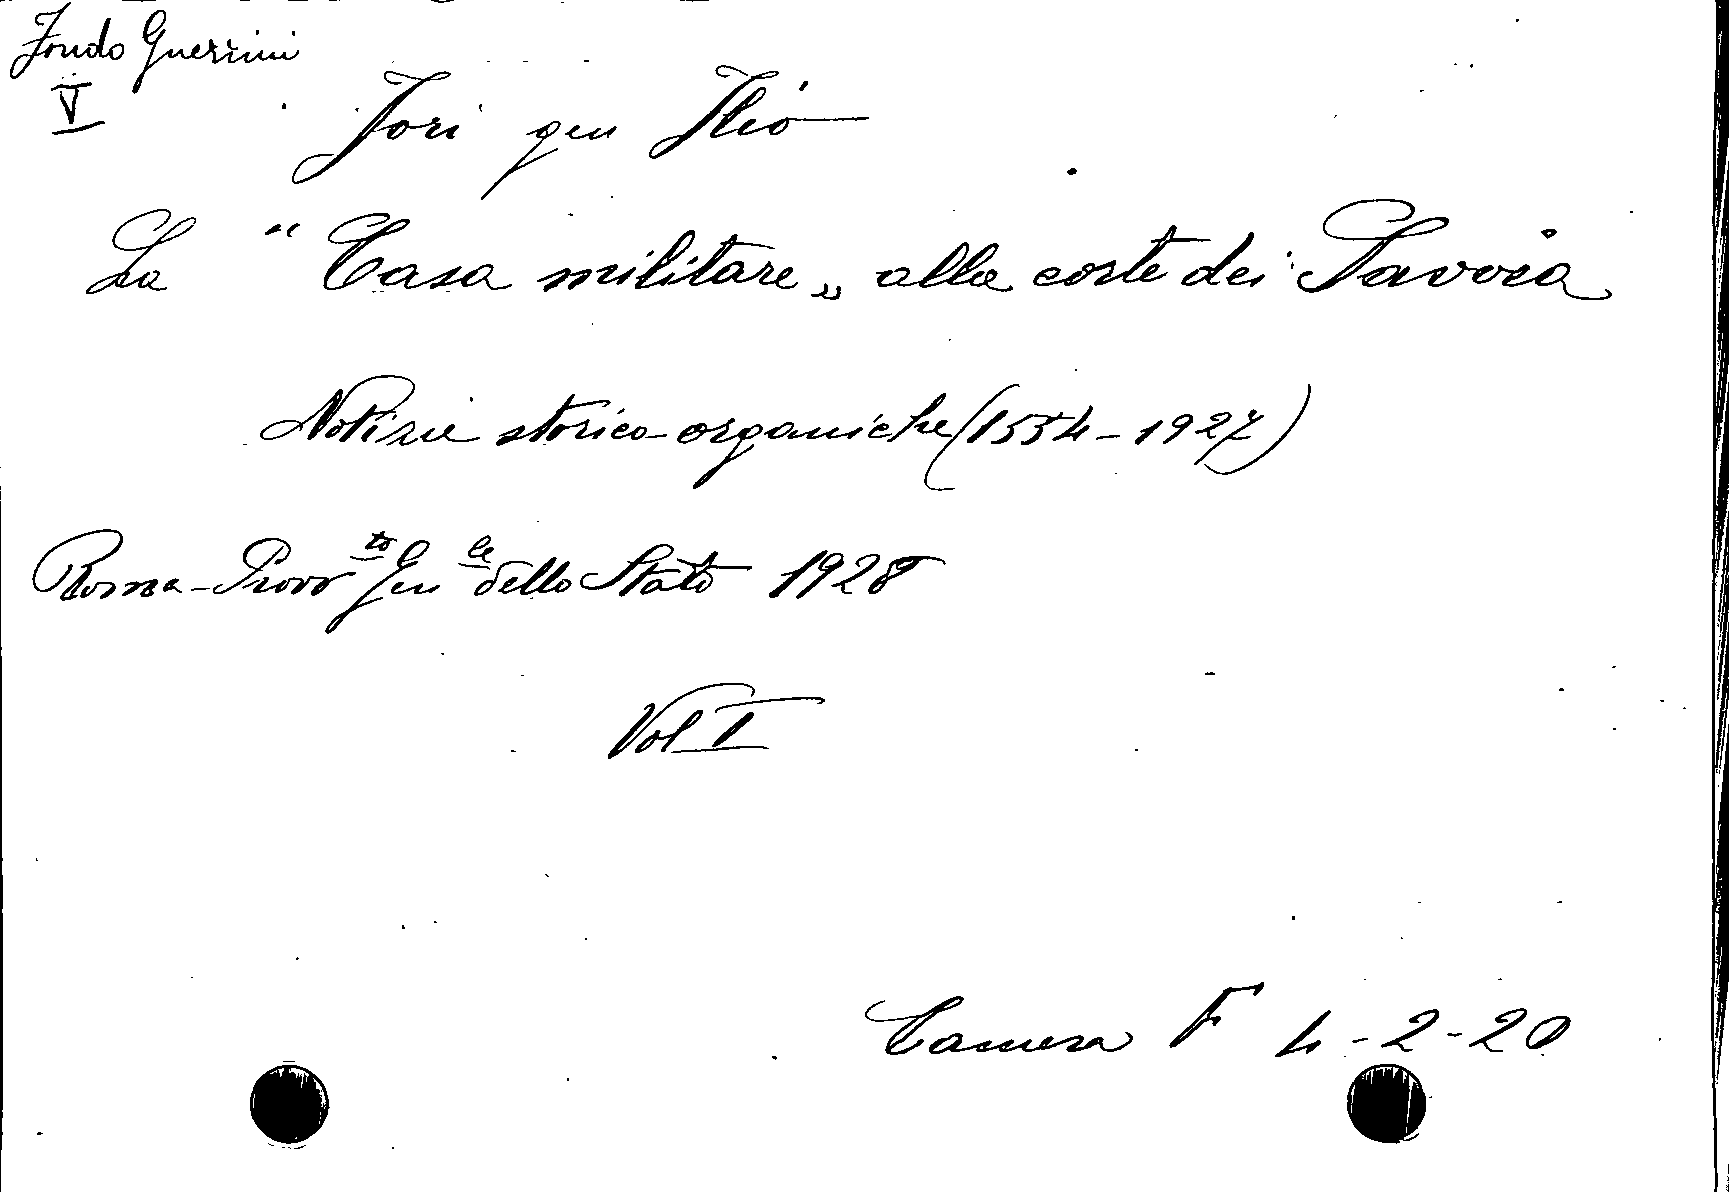 Fondo Guerrini
V
Jori gen Ilio
La "Casa militare„ alla corte dei Savoia
Notizie storico-organiche (1554-1927)
Roma-Provv to Gen le dello Stato 1928
Vol I
Camera F 4-2-20